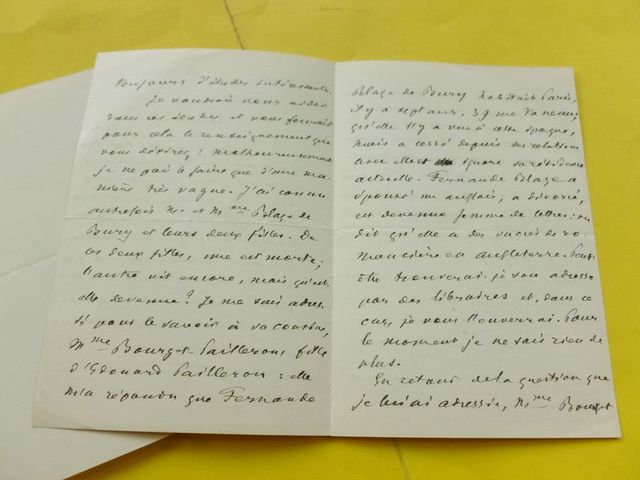 toujours d'études intéressantes.
Je voudrais vous aider
dans ces études et vous fournir
pour cela le renseignement que
vous désirez : malheureusement
je ne puis le faire que d'une ma-
nière très vague. J'ai connu
autrefois M. et Mme Blaze de
Bury et leurs deux filles. De
ces deux filles, une est morte ;
l'autre vit encore, mais qu'est-
elle devenue ? Je me suis adres-
sé pour le savoir à sa cousine,
Mme Bourget-Pailleron, fille
d'Edouard Pailleron : elle
m'a répondu que Fernande
Blaze de Bury habitait Paris,
il y a sept ans, 39 rue Vaneau
qu'elle l'y a vue à cette époque,
mais a cessé depuis ses relations
avec elle et ignore sa résidence
actuelle. Fernande Blaze a
épousé un anglais, a divorcé,
est devenue femme de lettres : on
dit qu'elle a des succès de ro-
mancière en Angleterre. Peut-
être trouverai-je son adresse
par des libraires et, dans ce
cas, je vous l'enverrai. Pour
le moment je ne sais rien de
plus.
En retour de la question que
je lui ai adressée, Mme Bourget